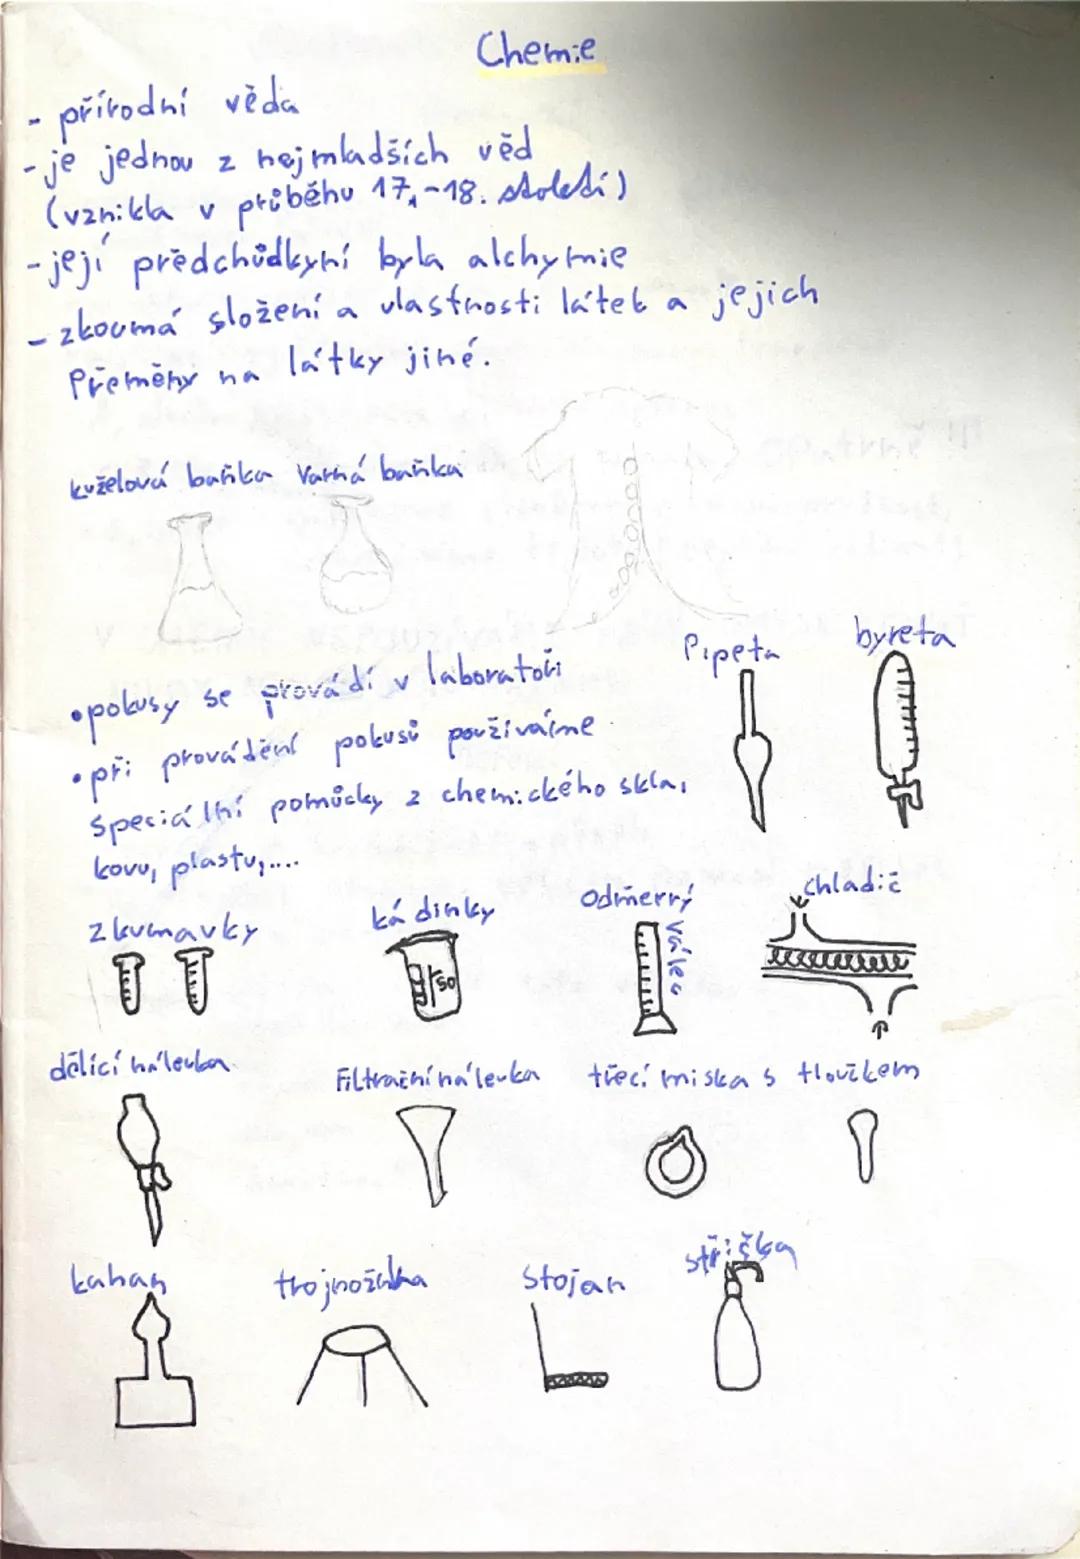 Chemie
- přírodní věda
- je jednou z nejmladších věd
(vznikla v průběhu 17.-18. století)
- její předchůdkyní byla alchymie
- zkoumá složení a vlastnosti látek a jejich
Přeměny na látky jiné.
kuželová baňka Varná baňka
Pipeta byreta
• pokusy se provádí v laboratoři
• při provádění pokusů používáme
speciální pomůcky z chemického skla,
kovu, plastu,....
zkumavky kádinky odměrný válec chladič
50
dělící nálevka Filtrační nálevka třecí miska s tloučkem
kahan trojnožka Stojan střička